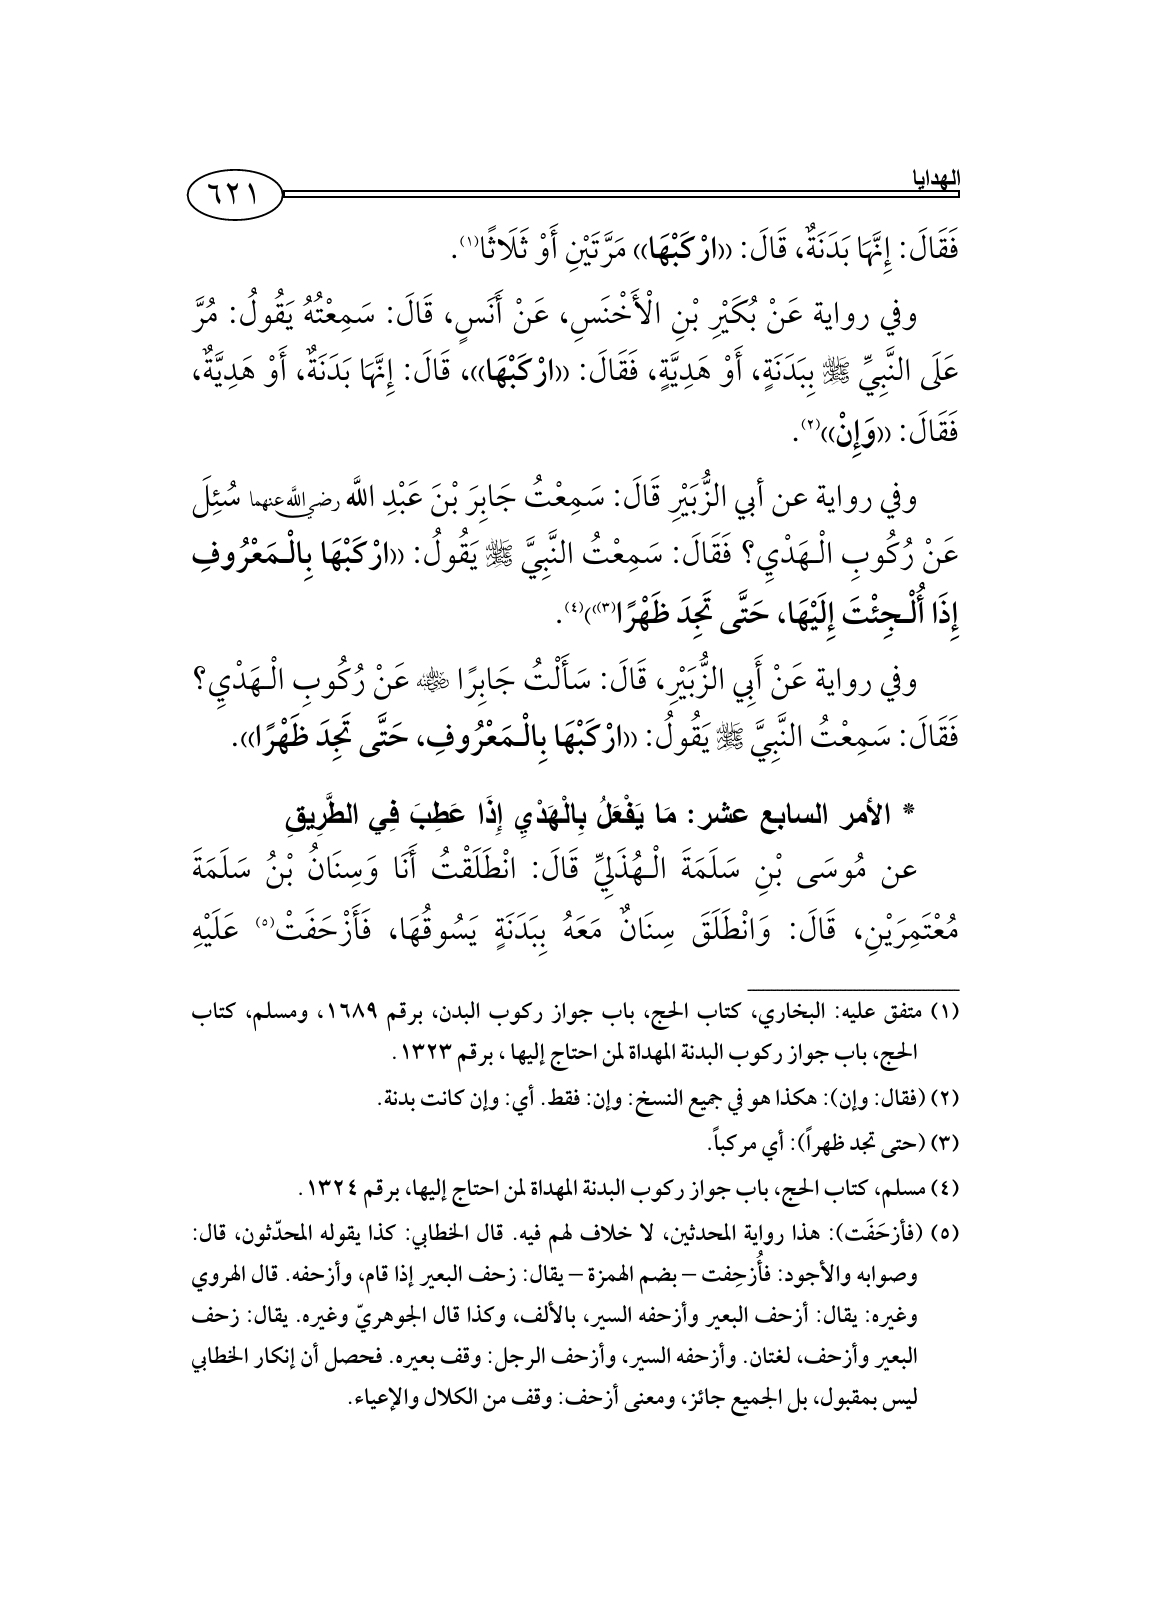 الهدايا
٦٢١
فَقَالَ: إِنَّهَا بَدَنَةٌ، قَالَ: ((ارْكَبْهَا)) مَرَّتَيْنِ أَوْ ثَلَاثًا(١).
وفي رواية عَنْ بُكَيْرِ بْنِ الْأَخْنَسِ، عَنْ أَنَسٍ، قَالَ: سَمِعْتُهُ يَقُولُ: مُرَّ
عَلَى النَّبِيِّ ﷺ بِبَدَنَةٍ، أَوْ هَدِيَّةٍ، فَقَالَ: ((ارْكَبْهَا))، قَالَ: إِنَّهَا بَدَنَةٌ، أَوْ هَدِيَّةٌ،
فَقَالَ: ((وَإِنْ))(٢).
وفي رواية عن أبي الزُّبَيْرِ قَالَ: سَمِعْتُ جَابِرَ بْنَ عَبْدِ اللَّه رضي الله عنهما سُئِلَ
عَنْ رُكُوبِ الْـهَدْيِ؟ فَقَالَ: سَمِعْتُ النَّبِيَّ ﷺ يَقُولُ: ((ارْكَبْهَا بِالْـمَعْرُوفِ
إِذَا أُلْـجِئْتَ إِلَيْهَا، حَتَّى تَجِدَ ظَهْرًا(٣)))(٤).
وفي رواية عَنْ أَبِي الزُّبَيْرِ، قَالَ: سَأَلْتُ جَابِرًا رضي الله عنه عَنْ رُكُوبِ الْـهَدْيِ؟
فَقَالَ: سَمِعْتُ النَّبِيَّ ﷺ يَقُولُ: ((ارْكَبْهَا بِالْـمَعْرُوفِ، حَتَّى تَجِدَ ظَهْرًا)).
* الأمر السابع عشر: مَا يَفْعَلُ بِالْهَدْيِ إِذَا عَطِبَ فِي الطَّرِيقِ
عن مُوسَى بْنِ سَلَمَةَ الْـهُذَلِيِّ قَالَ: انْطَلَقْتُ أَنَا وَسِنَانُ بْنُ سَلَمَةَ
مُعْتَمِرَيْنِ، قَالَ: وَانْطَلَقَ سِنَانٌ مَعَهُ بِبَدَنَةٍ يَسُوقُهَا، فَأَزْحَفَتْ(٥) عَلَيْهِ
(١) متفق عليه: البخاري، كتاب الحج، باب جواز ركوب البدن، برقم ١٦٨٩، ومسلم، كتاب
الحج، باب جواز ركوب البدنة المهداة لمن احتاج إليها ، برقم ١٣٢٣.
(٢) (فقال: وإن): هكذا هو في جميع النسخ: وإن: فقط. أي: وإن كانت بدنة.
(٣) (حتى تجد ظهراً): أي مركباً.
(٤) مسلم، كتاب الحج، باب جواز ركوب البدنة المهداة لمن احتاج إليها، برقم ١٣٢٤.
(٥) (فأزحَفَت): هذا رواية المحدثين، لا خلاف لهم فيه. قال الخطابي: كذا يقوله المحدّثون، قال:
وصوابه والأجود: فأُزحِفت – بضم الهمزة – يقال: زحف البعير إذا قام، وأزحفه. قال الهروي
وغيره: يقال: أزحف البعير وأزحفه السير، بالألف، وكذا قال الجوهريّ وغيره. يقال: زحف
البعير وأزحف، لغتان. وأزحفه السير، وأزحف الرجل: وقف بعيره. فحصل أن إنكار الخطابي
ليس بمقبول، بل الجميع جائز، ومعنى أزحف: وقف من الكلال والإعياء.